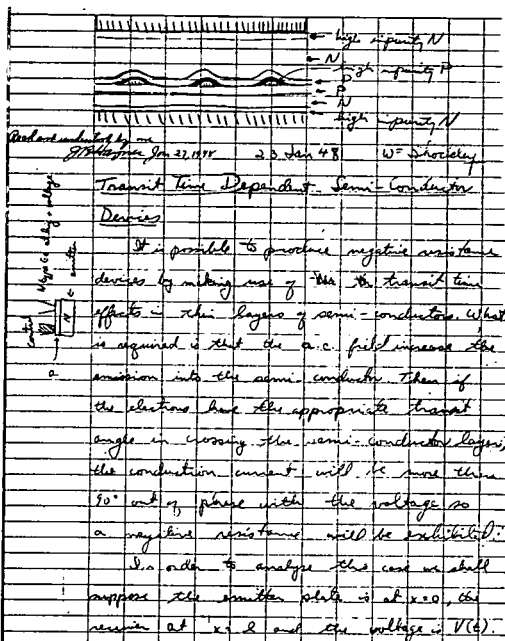 high impurity N
N
high impurity P
P
P
N
high impurity N
Read and understood by me
J R Haynes Jan 27, 1948 23 Jan 48 W Shockley
Transit Time Dependent Semi-Conductor
Devices
It is possible to produce negative resistance
devices by making use of the transit time
effects in thin layers of semi-conductors. What
is required is that the a.c. field increase the
emission into the semi-conductor. Then if
the electrons have the appropriate transit
angle in crossing the semi-conductor layer,
the conduction current will be more than
90° out of phase with the voltage so
a negative resistance will be exhibited.
In order to analyze this case we shall
suppose the emitter plate is at x=0, the
receiver at x=l and the voltage is V(t).
control
N
emitter
a